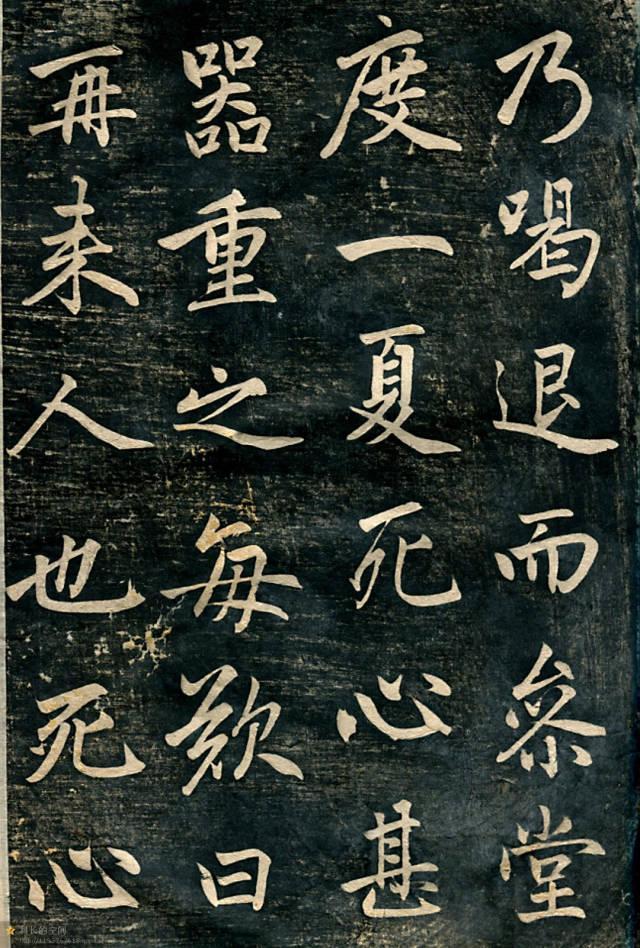 乃喝退而参堂
度一夏死心甚
器重之每欵曰
再来人也死心